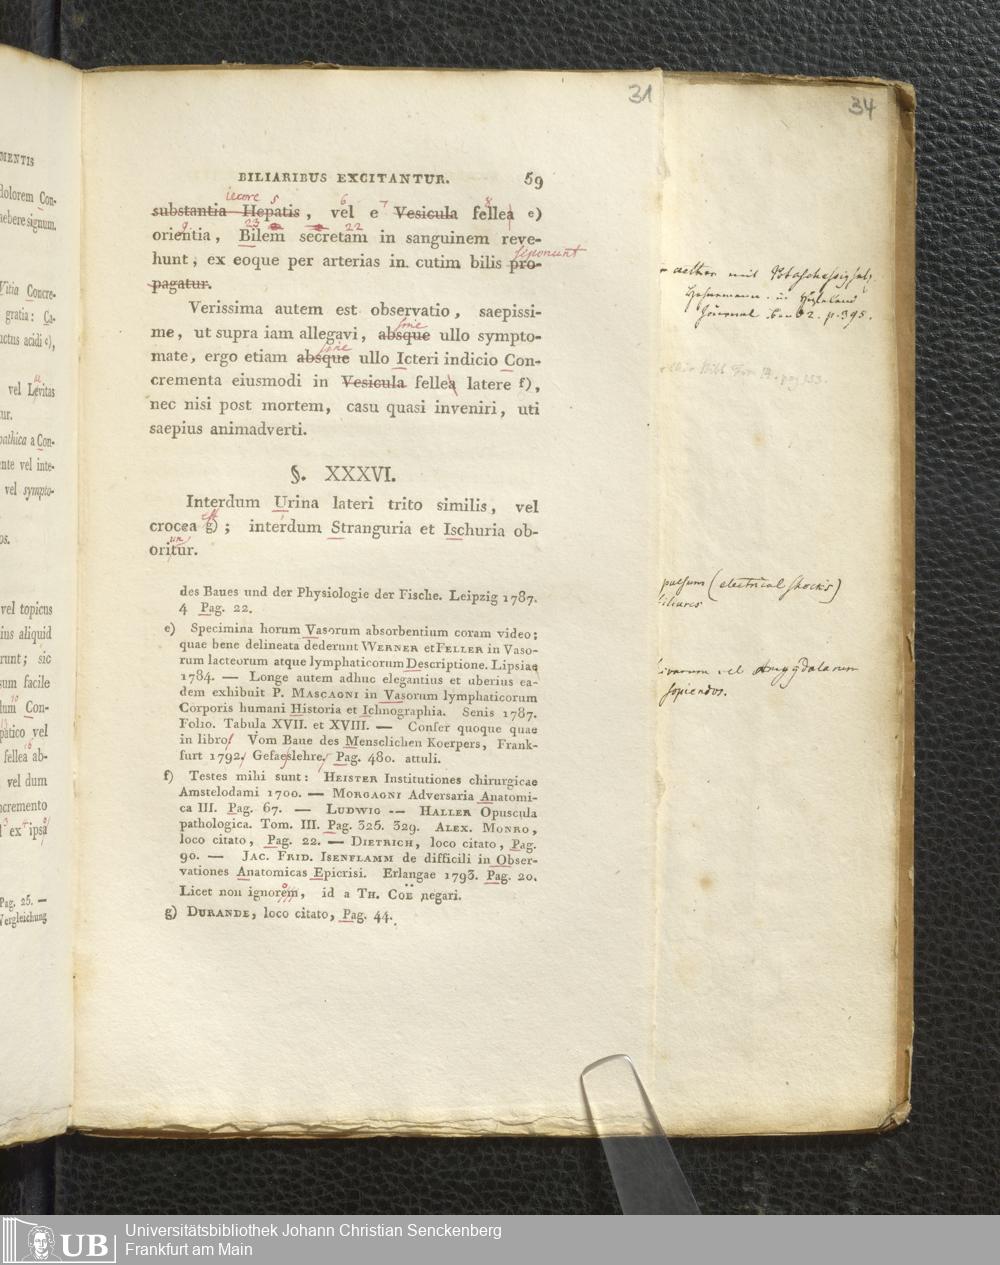 MENTIS
dolorem Con-
aebere signum.
Vitia Concre-
gratia: Ca-
uctus acidi c),
vel Levitas
u
tur.
pathica a Con-
ente vel inte-
vel sympto-
os.
vel topicus
ius aliquid
runt; sic
sum facile
dum Con-
10
13
patico vel
16
fellea ab-
vel dum
ncremento
3 4
l ex ipsa
Pag. 25. —
Vergleichung
31
BILIARIBUS EXCITANTUR. 59
iecore 5 6 7 8
substantia Hepatis, vel e Vesicula fellea e)
9 23 22
orientia, Bilem secretam in sanguinem reve-
seponunt
hunt; ex eoque per arterias in cutim bilis pro-
pagatur.
Verissima autem est observatio, saepissi-
me, ut supra iam allegavi, absque ullo sympto-
sine
mate, ergo etiam absque ullo Icteri indicio Con-
sine
crementa eiusmodi in Vesicula fellea latere f),
nec nisi post mortem, casu quasi inveniri, uti
saepius animadverti.
§. XXXVI.
Interdum Urina lateri trito similis, vel
est
crocea g); interdum Stranguria et Ischuria ob-
un
oritur.
des Baues und der Physiologie der Fische. Leipzig 1787.
4 Pag. 22.
e) Specimina horum Vasorum absorbentium coram video;
quae bene delineata dederunt WERNER et FELLER in Vaso-
rum lacteorum atque lymphaticorum Descriptione. Lipsiae
1784. — Longe autem adhuc elegantius et uberius ea-
dem exhibuit P. MASCAGNI in Vasorum lymphaticorum
Corporis humani Historia et Ichnographia. Senis 1787.
Folio. Tabula XVII. et XVIII. — Confer quoque quae
in libro: Vom Baue des Menschlichen Koerpers, Frank-
furt 1792, Gefaeslehre, Pag. 480. attuli.
f) Testes mihi sunt: HEISTER Institutiones chirurgicae
Amstelodami 1700. — MORGAGNI Adversaria Anatomi-
ca III. Pag. 67. — LUDWIG — HALLER Opuscula
pathologica. Tom. III. Pag. 325. 329. ALEX. MONRO,
loco citato, Pag. 22. — DIETRICH, loco citato, Pag.
90. — JAC. FRID. ISENFLAMM de difficili in Obser-
vationes Anatomicas Epicrisi. Erlangae 1793. Pag. 20.
Licet non ignorem, id a TH. COË negari.
g) DURANDE, loco citato, Pag. 44.
34
aether mit
in Hufeland
Journal Band 2. p. 395.
Bibl pag 153.
pulsum (electrical shocks)
iliares
ivarum vel Amygdalarum
sopiendos.
Universitätsbibliothek Johann Christian Senckenberg
Frankfurt am Main
UB